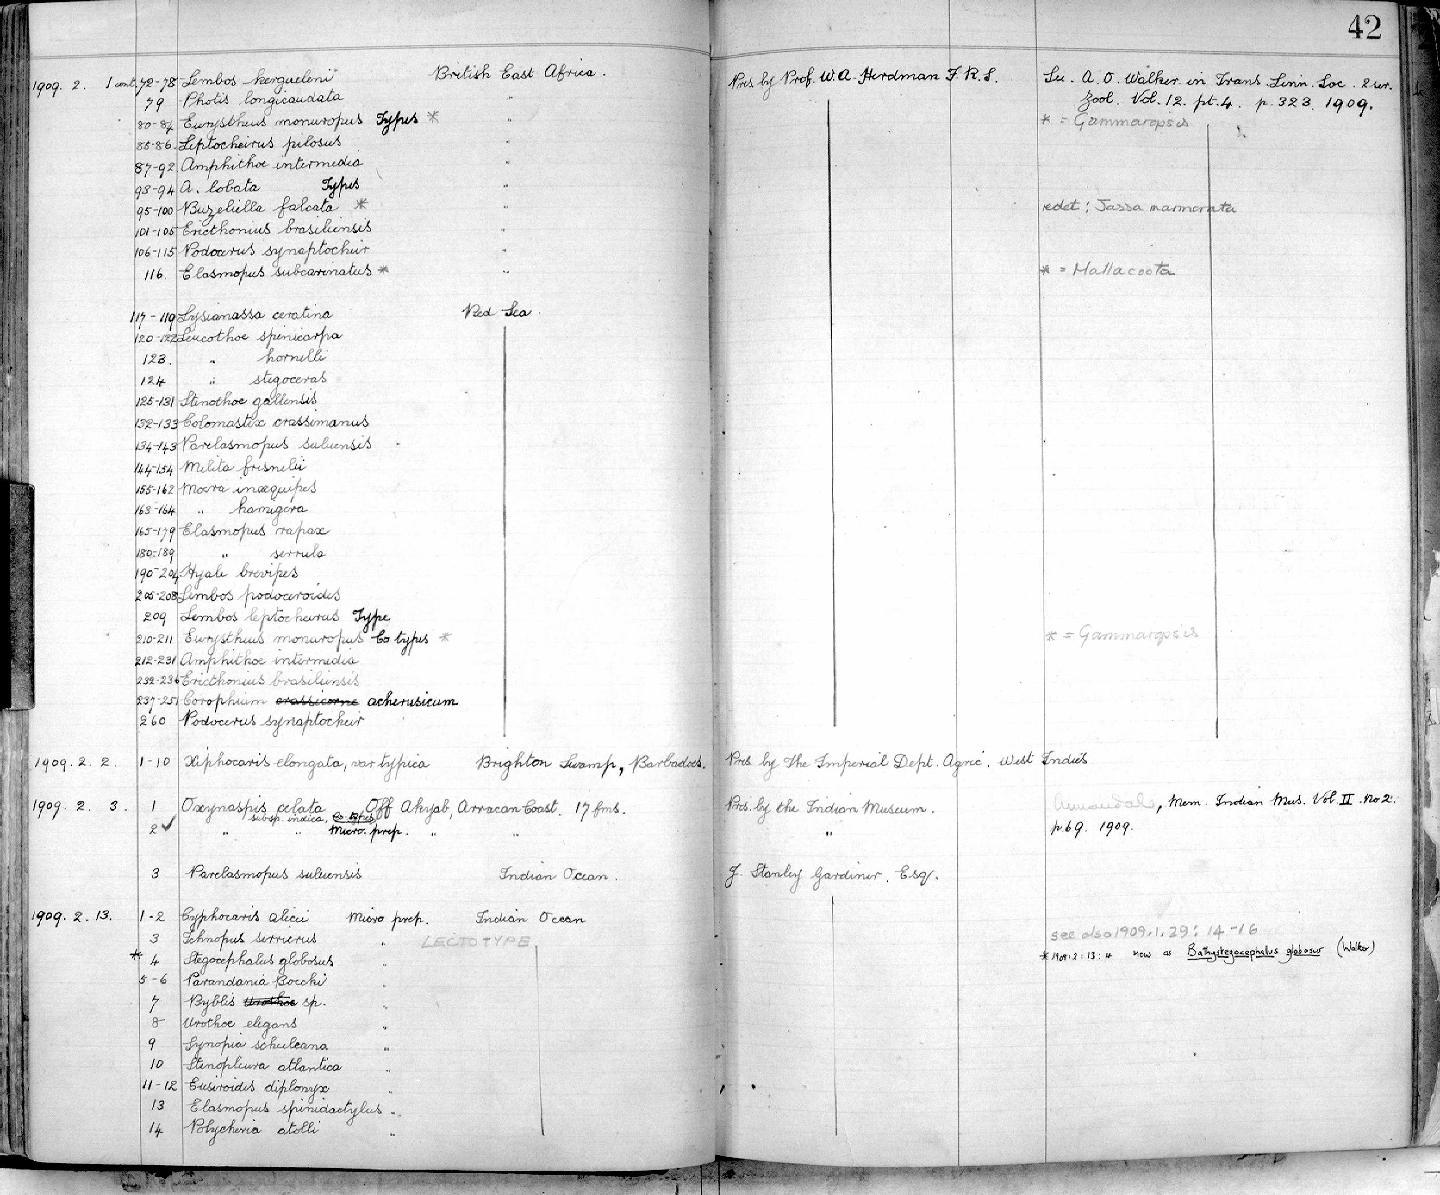 42
1909. 2. 1 cont. 72-78 Lembos kergueleni British East Africa. Pres by Prof. W. A. Herdman F.R.S. See A. O. Walker in Trans. Linn. Soc. 2 ser.
79 Photis longicaudata " Zool. Vol. 12. pt. 4. p. 323. 1909.
80-84 Eurystheus monuropus Types * " * = Gammaropsis
85-86. Leptocheirus pilosus "
87-92 Amphithoe intermedia "
93-94 A. lobata Types "
95-100 Buzeliella falcata * " redet: Jassa marmorata
101-105 Ericthonius brasiliensis "
106-115 Podocerus synaptocheir "
116. Elasmopus subcarinatus * " * = Mallacoota
117-119 Lysianassa ceratina Red Sea.
120-122 Leucothoe spinicarpa
123. " hornelli
124 " stegoceras
125-131 Stenothoe gallensis
132-133 Colomastix crassimanus
134-143 Parelasmopus suluensis
144-154 Melita fresnelii
155-162 Moera inæquipes
163-164 " hamigera
165-179 Elasmopus rapax
180-189 " serrula
190-204 Hyale brevipes
205-208 Lembos podoceroides
209 Lembos leptocheirus Type
210-211 Eurystheus monuropus Co types * * = Gammaropsis
212-231 Amphithoe intermedia
232-236 Ericthonius brasiliensis
237-251 Corophium crassicorne acherusicum
260 Podocerus synaptocheir
1909. 2. 2. 1-10 Xiphocaris elongata, var typica Brighton Swamp, Barbados. Pres by The Imperial Dept. Agric. West Indies
1909. 2. 3. 1 Oxynaspis celata Off Akyab, Arracan Coast. 17 fms. Pres. by the Indian Museum. Annandale, Mem. Indian Mus. Vol II. No 2.
subsp. indica, Co-types
2 ✓ " " Micro. prep. " " " p. 69. 1909.
3 Parelasmopus suluensis Indian Ocean. J. Stanley Gardiner. Esq.
1909. 2. 13. 1-2 Cyphocaris alicei Micro prep. Indian Ocean
3 Ichnopus serricrus " LECTOTYPE see also 1909.1.29: 14-16
* 4 Stegocephalus globosus " * 1909:2:13:4 now as Bathystegocephalus globosus (Walker)
5-6 Parandania Boecki "
7 Byblis Urothoe sp. "
8 Urothoe elegans "
9 Synopia schuleana "
10 Stenopleura atlantica "
11-12 Eusiroides diplonyx "
13 Elasmopus spinidactylus "
14 Polycheria atolli "